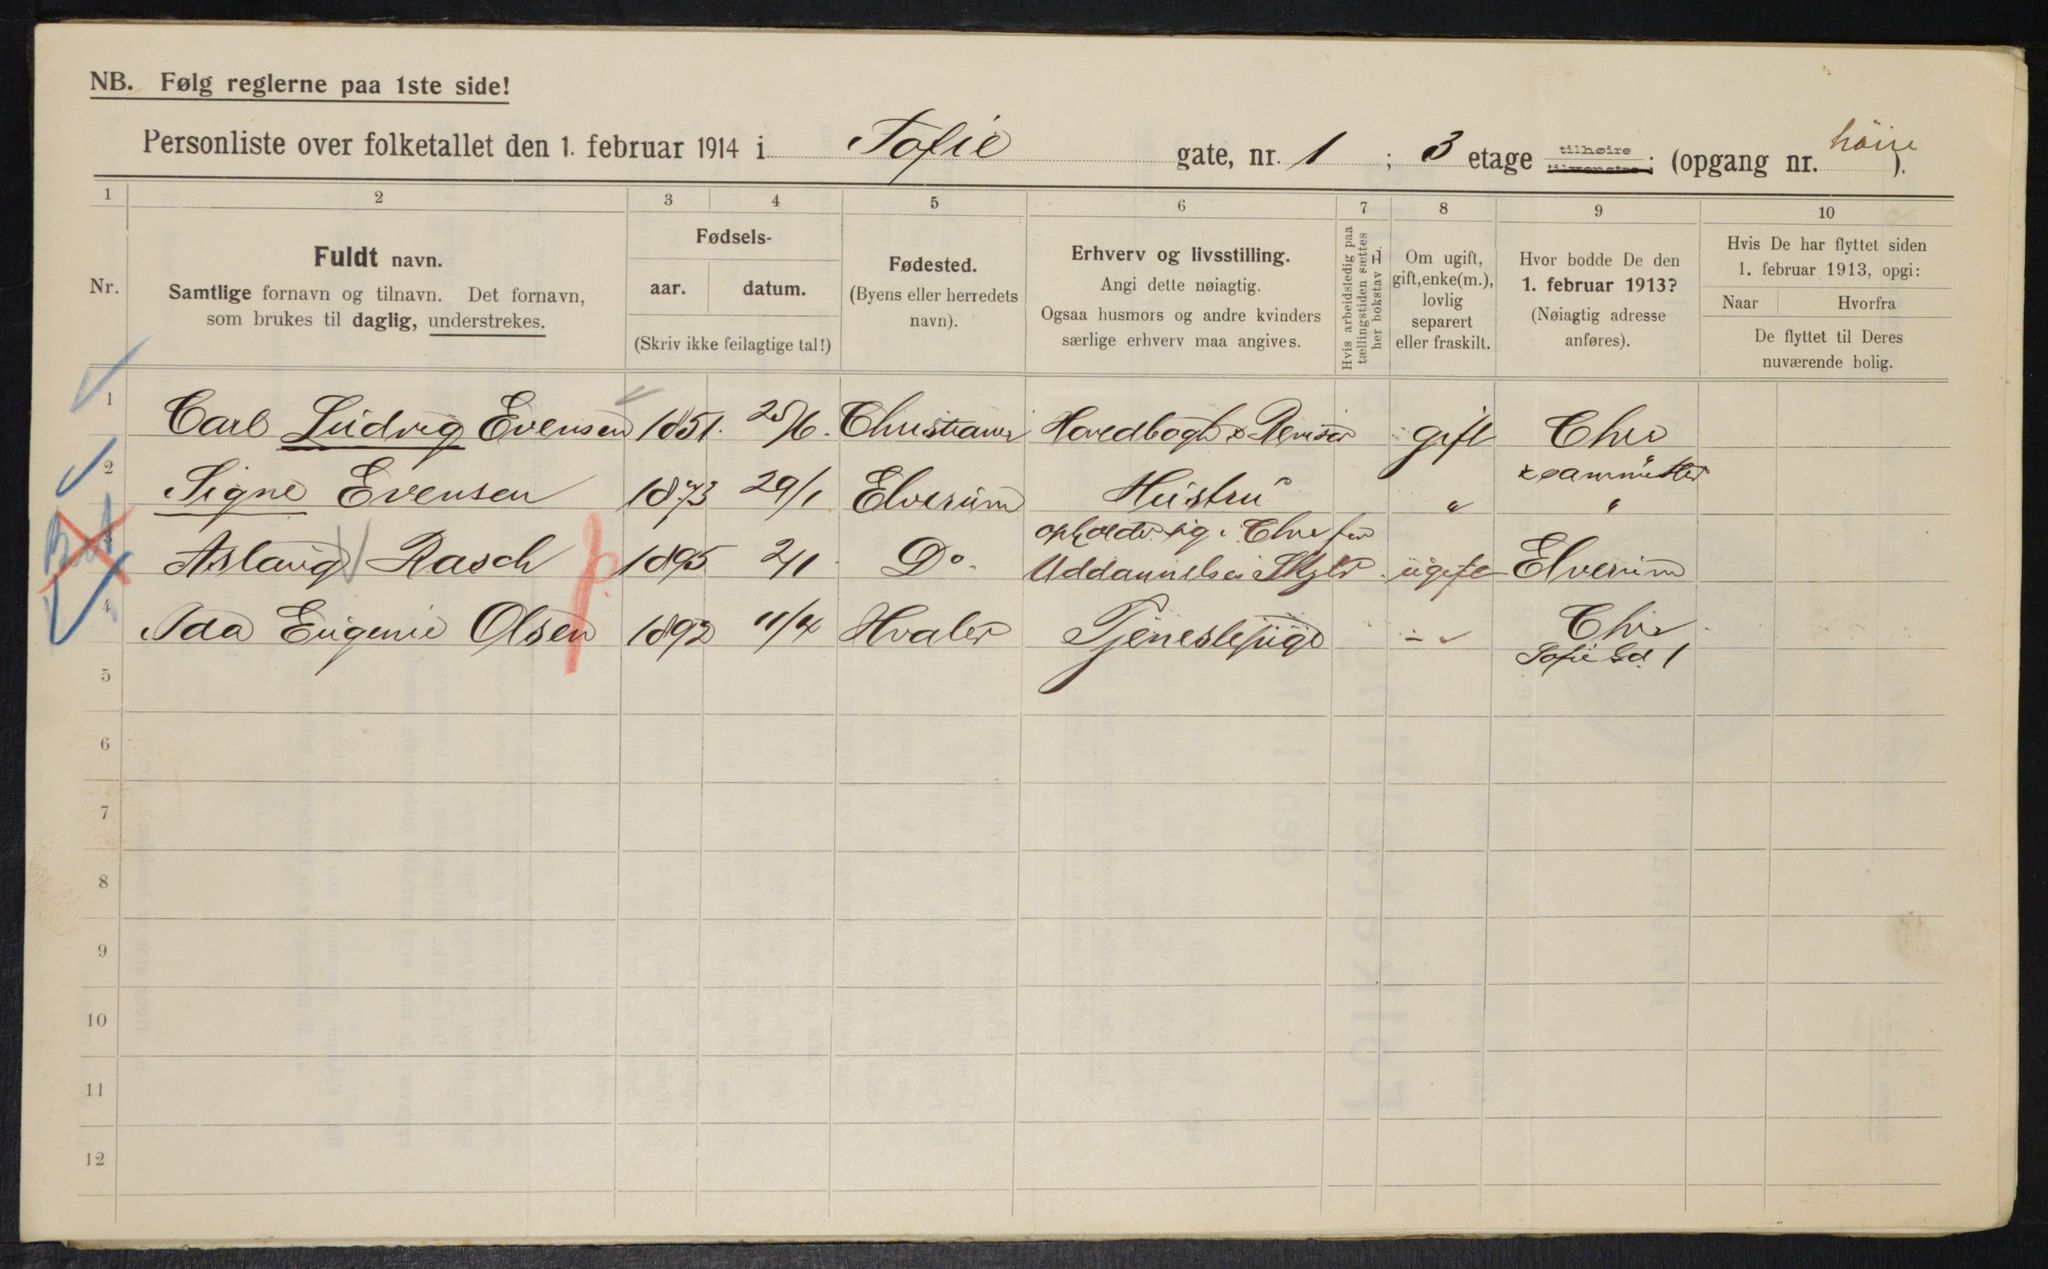 NB. Følg reglerne paa 1ste side!
Personliste over folketallet den 1. februar 1914 i Sofie gate, nr. 1 ; 3 etage tilhøire tilvenstre ; (opgang nr. høire ).
1 2 3 4 5 6 7 8 9 10
Nr.
Fuldt navn.
Samtlige fornavn og tilnavn. Det fornavn,
som brukes til daglig, understrekes.
Fødsels-
aar. datum.
(Skriv ikke feilagtige tal!)
Fødested.
(Byens eller herredets
navn).
Erhverv og livsstilling.
Angi dette nøiagtig.
Ogsaa husmors og andre kvinders
særlige erhverv maa angives.
Hvis arbeidsledig paa
tællingstiden sættes
her bokstav L.
Om ugift,
gift, enke(m.),
lovlig
separert
eller fraskilt.
Hvor bodde De den
1. februar 1913?
(Nøiagtig adresse
anføres).
Hvis De har flyttet siden
1. februar 1913, opgi:
Naar Hvorfra
De flyttet til Deres
nuværende bolig.
1 Carl Ludvig Evensen 1851. 25/6. Christiania Hovedbogh & Revisor gift Chra
sammested
2 Signe Evensen 1873 29/1 Elverum Hustru " "
opholder sig i Chra for
3 Aslaug Rasch 1895 2/1 Do. Uddannelses Skyld. ugift Elverum
4 Ida Eugenie Olsen 1892 11/4 Hvaler Tjenestepige - " Chra
Sofie Gd. 1
5
6
7
8
9
10
11
12